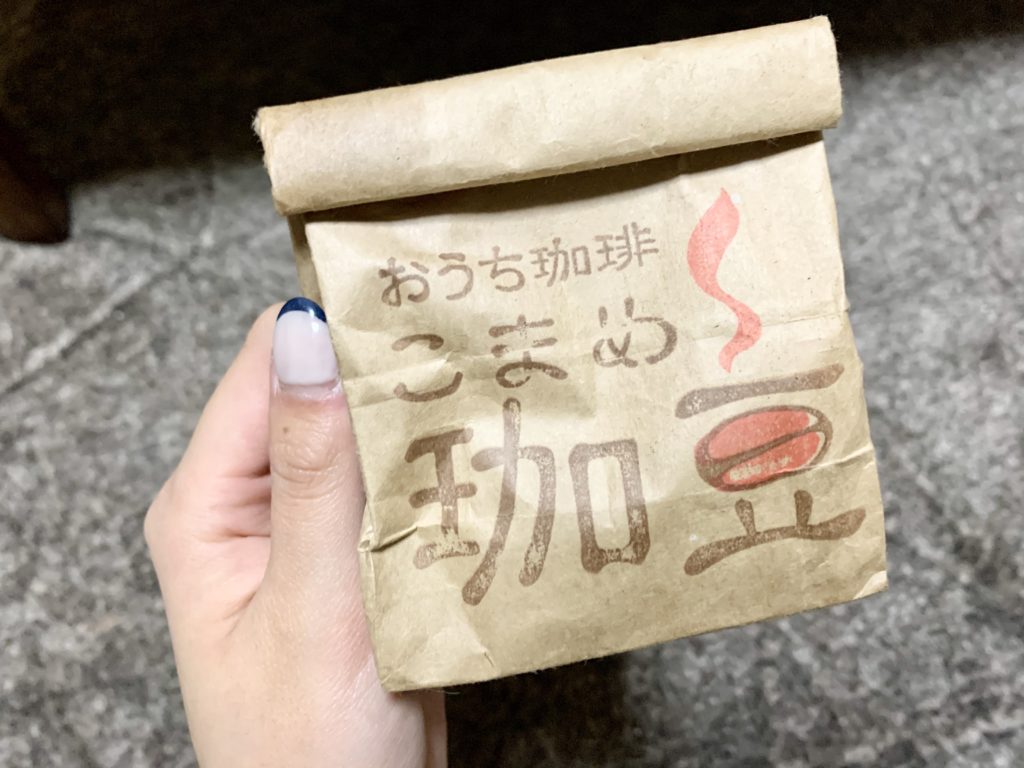 おうち珈琲
こまめ
珈豆